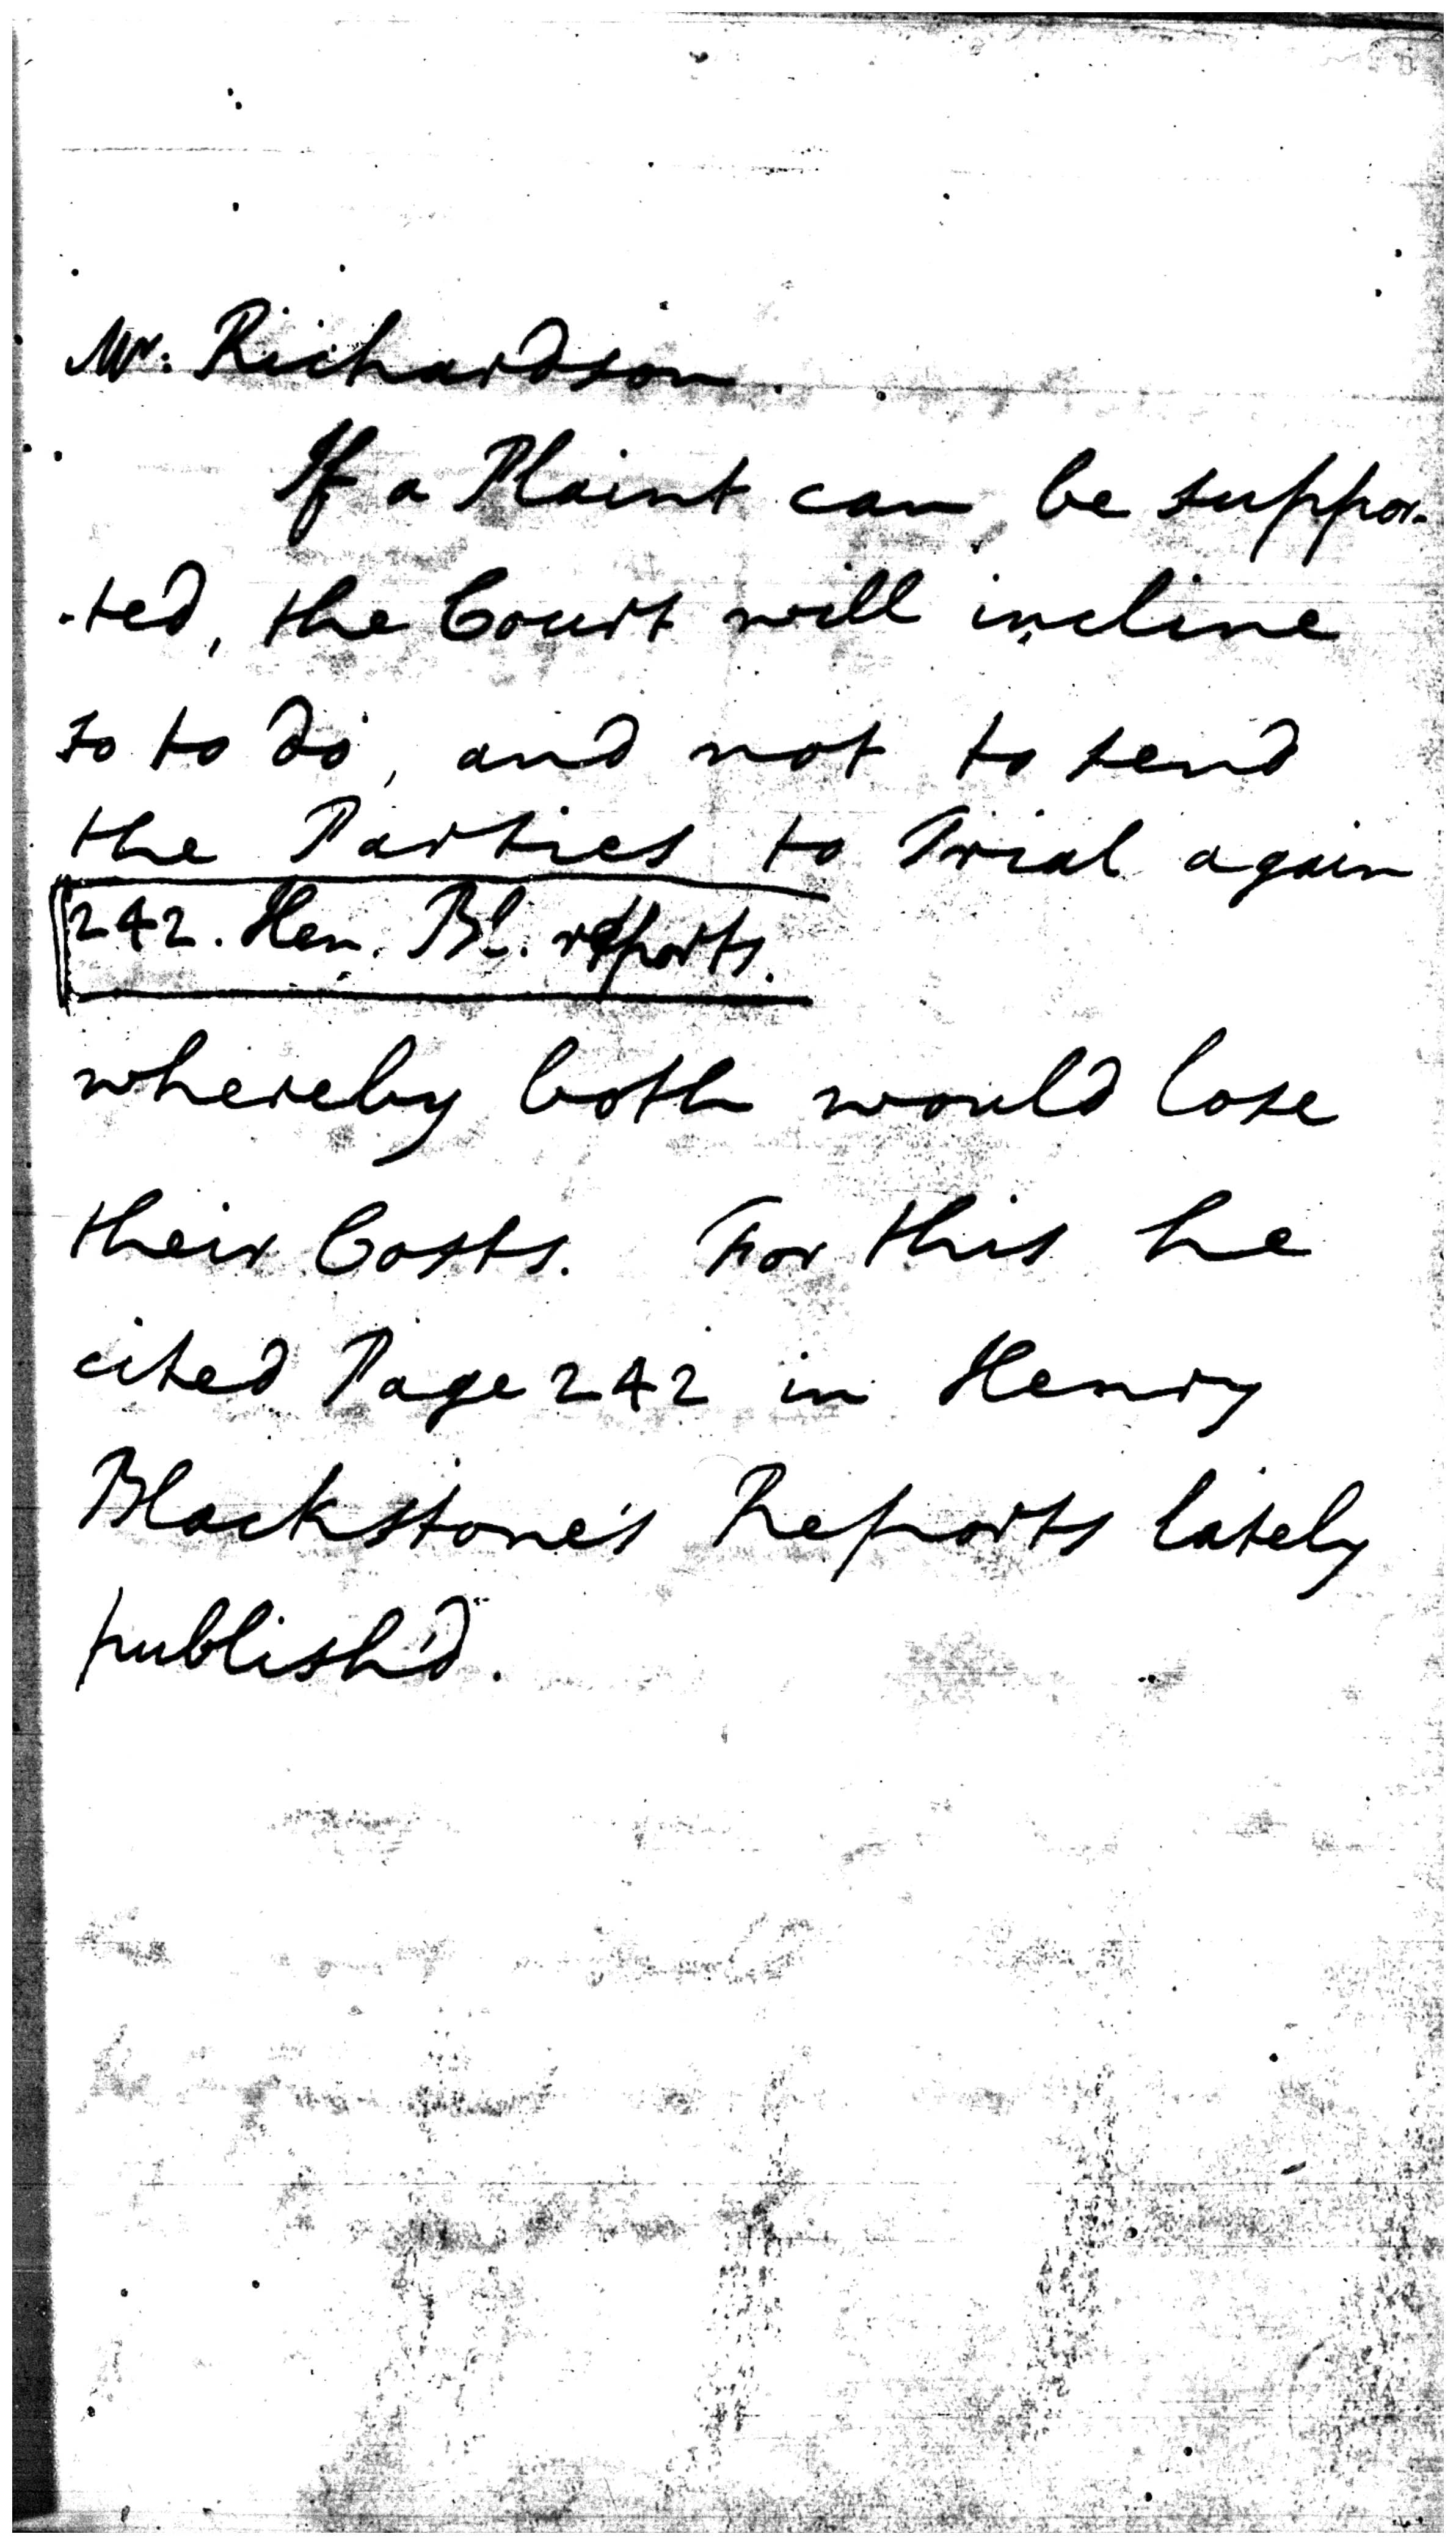 Mr. Richardson.
If a Plaint can be suppor-
-ted, the Court will incline
so to do, and not to send
the Parties to Trial again
242. Hen. Bl. reports.
whereby both would lose
their Costs. For this he
cited Page 242 in Henry
Blackstone's Reports lately
publish'd.